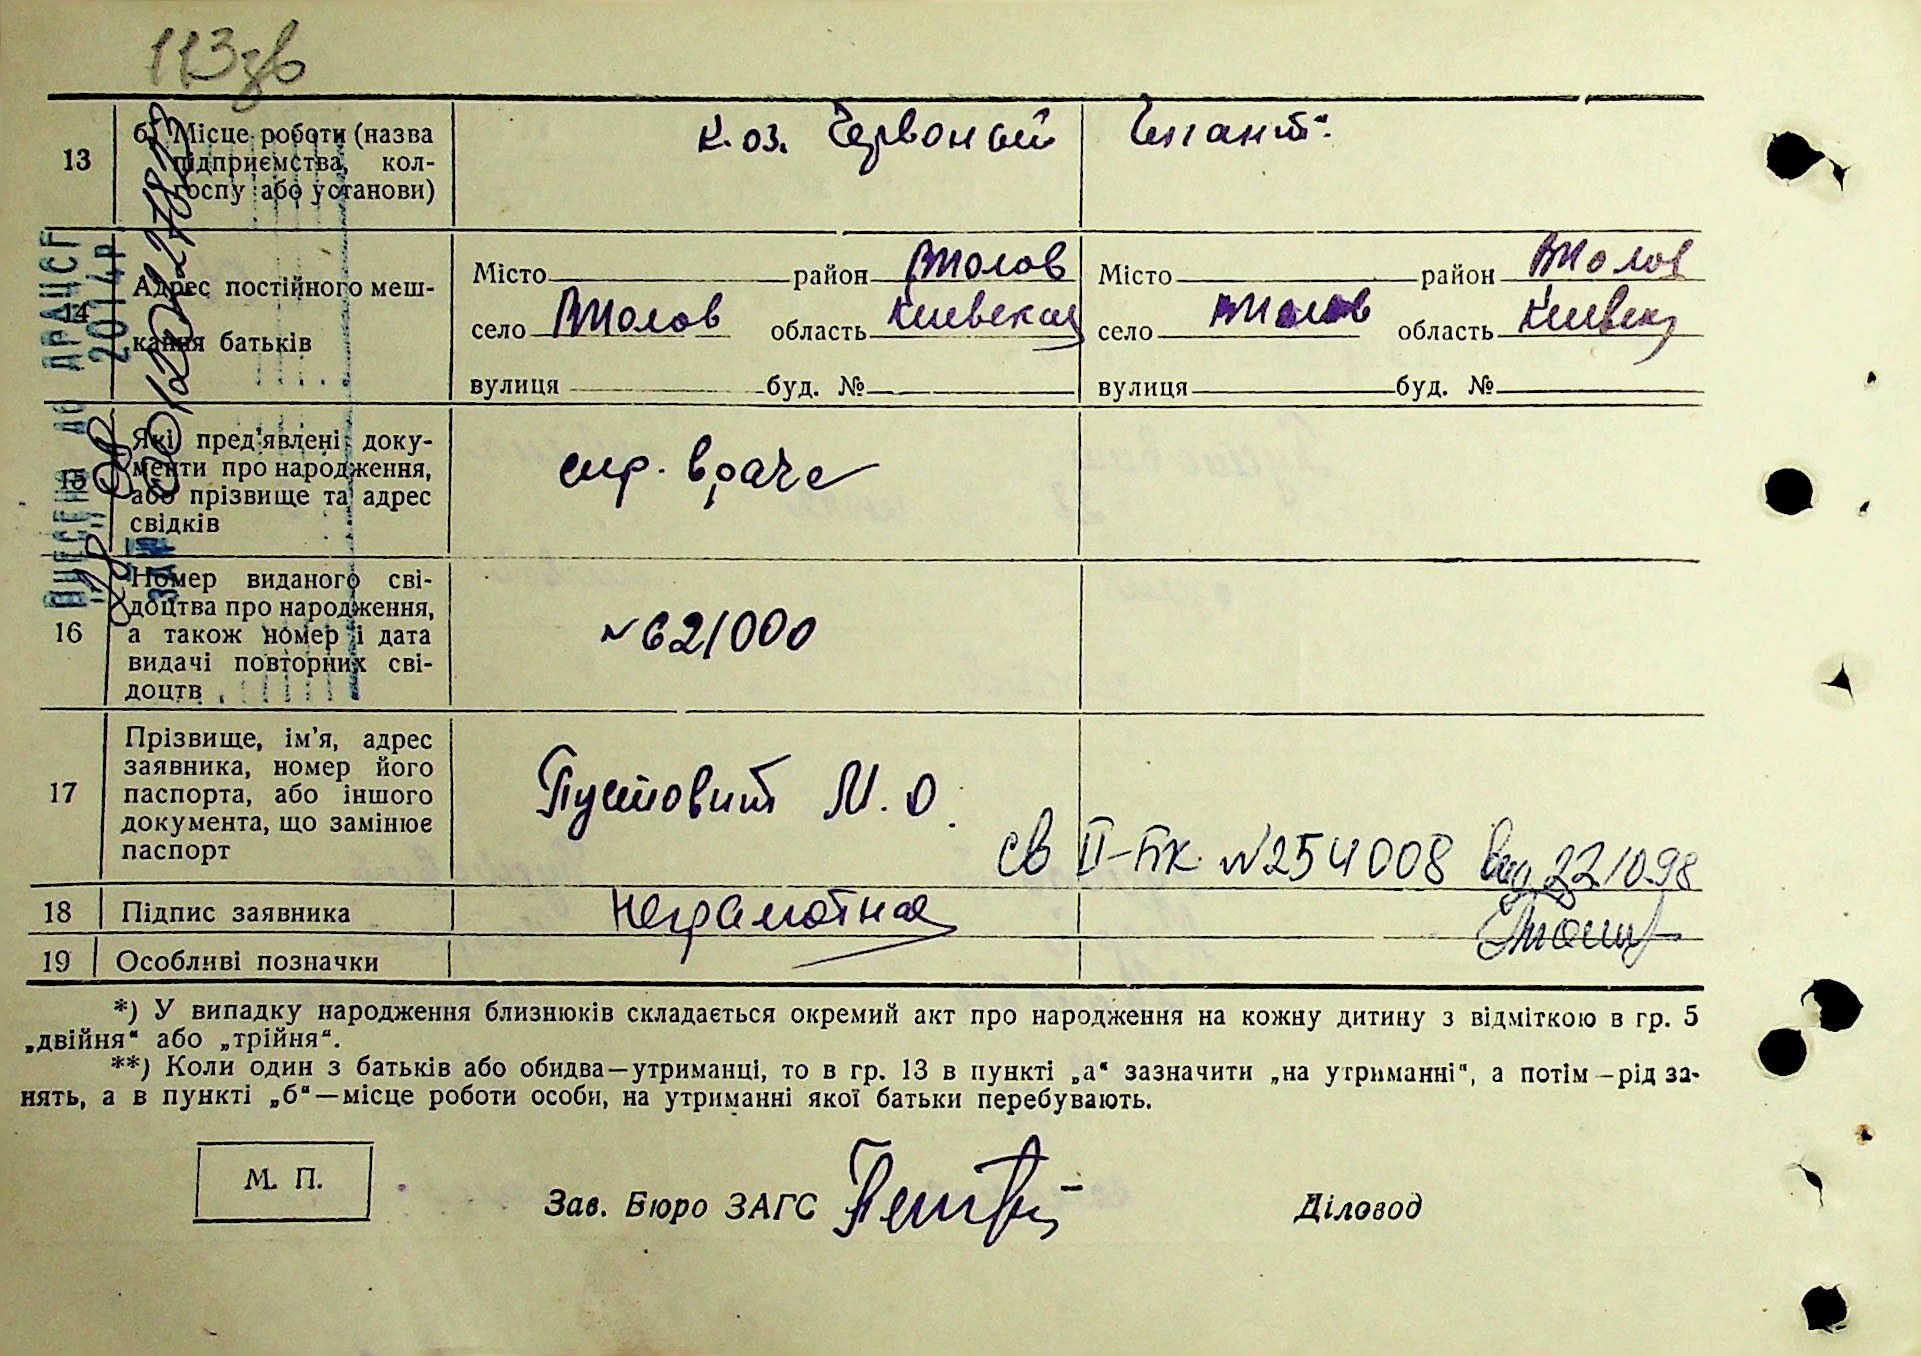 113зв
13
б) Місце роботи (назва
підприємства, кол-
госпу або установи)
к-оз. Червоний Гигант".
14
Адрес постійного меш-
кання батьків
Місто район
село область Киевская
вулиця буд. №
Місто район
село область Киевск
вулиця буд. №
15
Які пред'явлені доку-
менти про народження,
або прізвище та адрес
свідків
спр. врача
16
Номер виданого сві-
доцтва про народження,
а також номер і дата
видачі повторних сві-
доцтв
№621000
17
Прізвище, ім'я, адрес
заявника, номер його
паспорта, або іншого
документа, що замінює
паспорт
Пустовит М. О.
св II-БК №254008 вид 22.10.98
18
Підпис заявника
Неграмотная
19
Особливі позначки
ВНЕСЕНО ДО ДРАЦСГ
2014р
*) У випадку народження близнюків складається окремий акт про народження на кожну дитину з відміткою в гр. 5
„двійня“ або „трійня“.
**) Коли один з батьків або обидва—утриманці, то в гр. 13 в пункті „а“ зазначити „на утриманні“, а потім—рід за-
нять, а в пункті „б“—місце роботи особи, на утриманні якої батьки перебувають.
М. П.
Зав. Бюро ЗАГС
Діловод